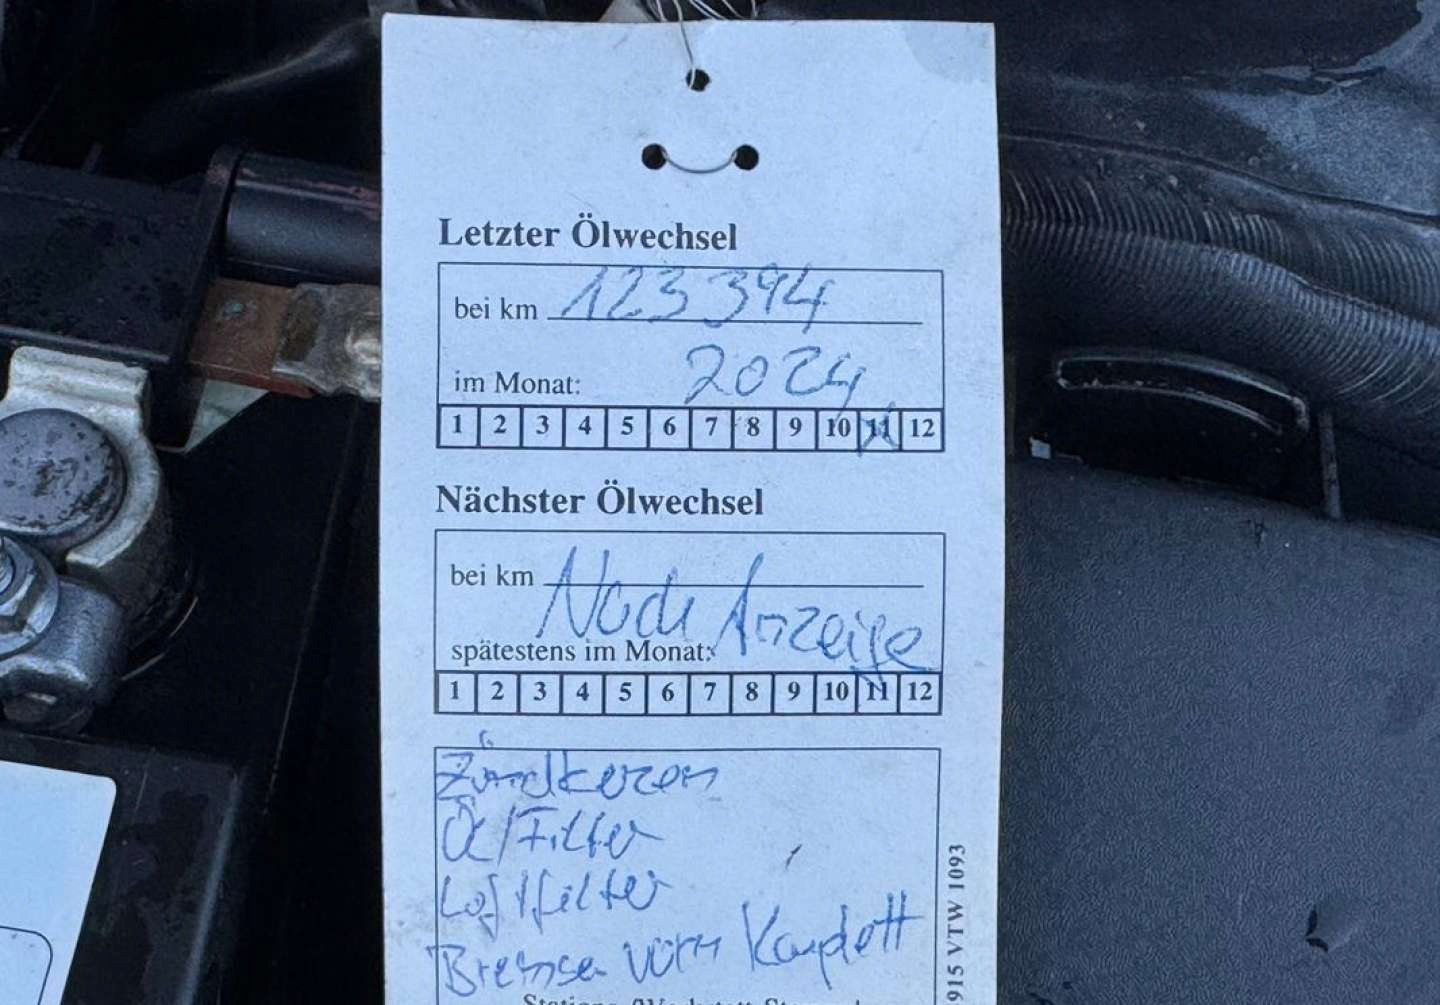 Letzter Ölwechsel
bei km 123394
im Monat: 2024
1 2 3 4 5 6 7 8 9 10 11 12
Nächster Ölwechsel
bei km Nach Anzeige
spätestens im Monat:
1 2 3 4 5 6 7 8 9 10 11 12
Zündkerzen
Öl/Filter
Luftfilter
Bremse vorn Komplett
915 VTW 1093